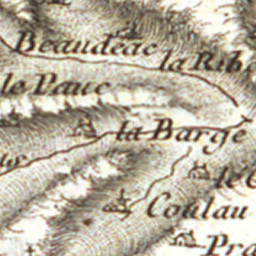 Beaudéac
la Rib
le Pauc
la Barge
Coulau
Pra